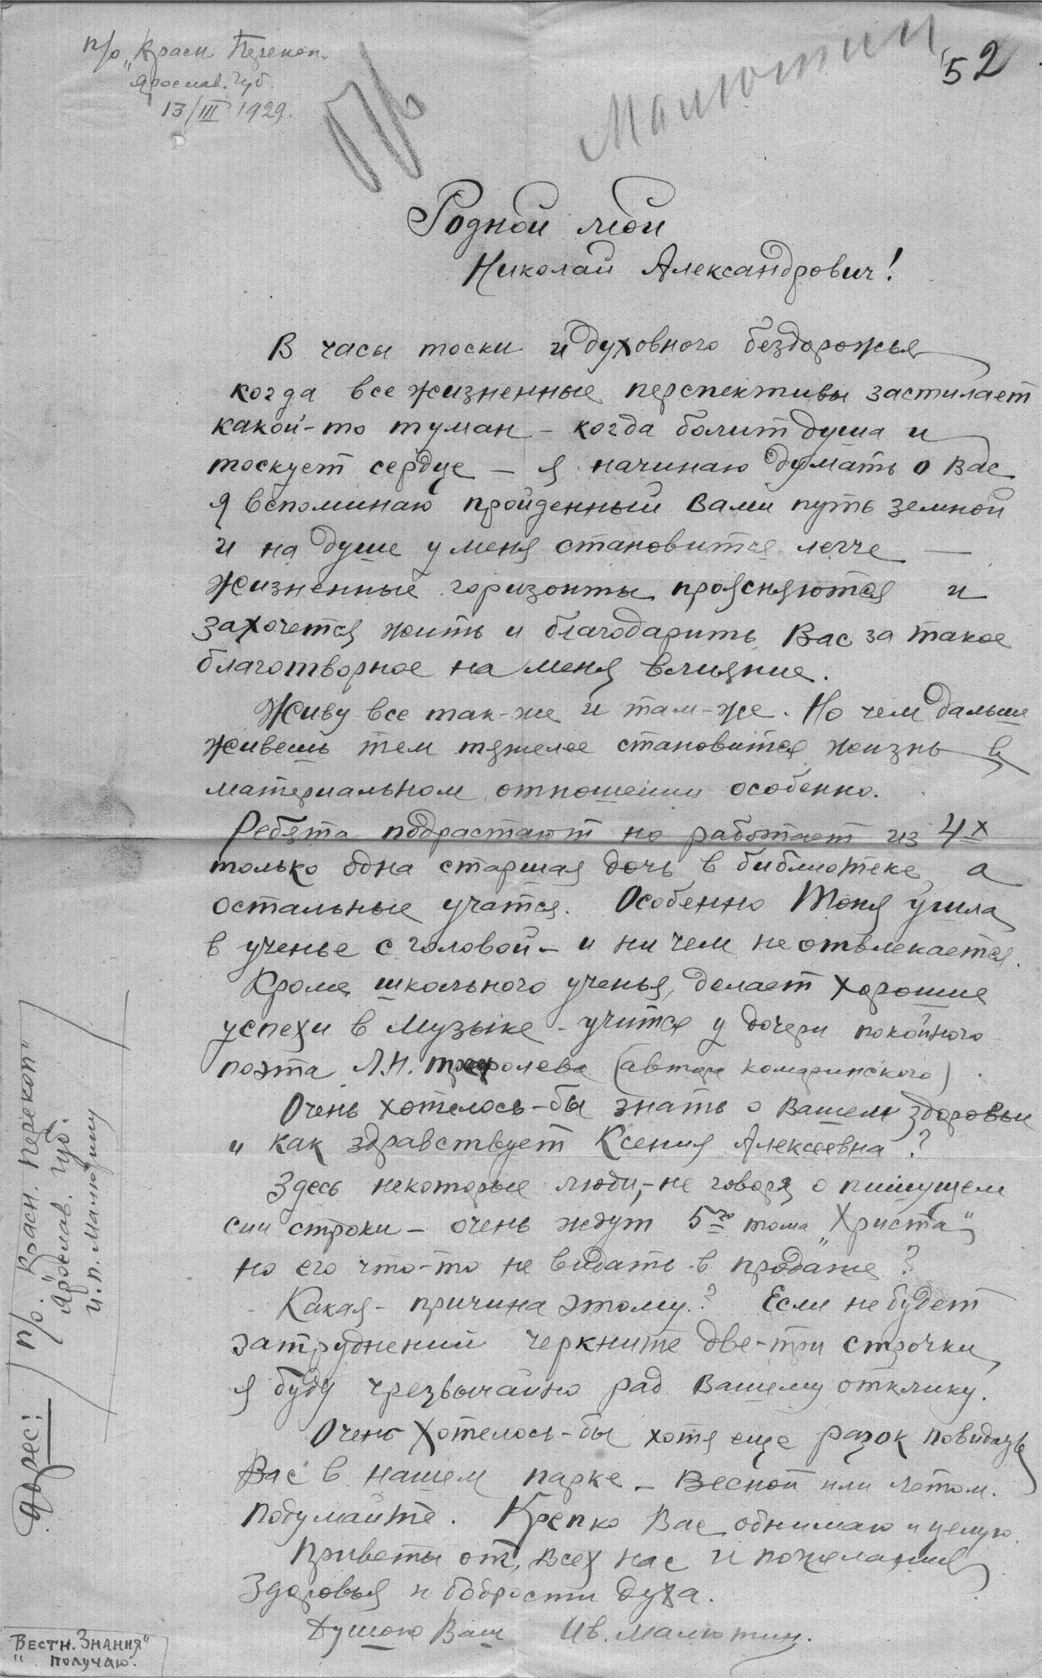 п/о „Красн. Перекоп.
Ярослав. Губ.
13/III 1929.
Малютин
52
Родной мой
Николай Александрович!
В часы тоски и духовного бездорожья
когда все жизненные перспективы застилает
какой-то туман – когда болит душа и
тоскует сердце – я начинаю думать о Вас
Я вспоминаю пройденный Вами путь земной
и на душе у меня становится легче —
жизненные горизонты проясняются и
захочется жить и благодарить Вас за такое
благотворное на меня влияние.
Живу все так-же и там-же. Но чем дальше
живешь тем тяжелее становится жизнь в
материальном отношении особенно.
Ребята подрастают но работает из 4х
только одна старшая дочь в библиотеке, а
остальные учатся. Особенно Тоня ушла
в ученье с головой – и ни чем не отвлекается.
Кроме школьного ученья, делает хорошие
успехи в музыке – учится у дочери покойного
поэта Л.Н. Трефолева (автора комаринского).
Очень хотелось-бы знать о Вашем здоровьи
и как здравствует Ксения Алексеевна?
Здесь некоторые люди, – не говоря о пишущем
сии строки – очень ждут 5го тома „Христа“,
но его что-то не видать в продаже?
Какая – причина этому? Если не будет
затруднений черкните две-три строчки,
я буду чрезвычайно рад Вашему отклику.
Очень хотелось-бы хотя еще разок повидать
Вас в нашем парке – весной или летом.
Подумайте. Крепко Вас обнимаю и целую.
Приветы от всех нас и пожелания
здоровья и бодрости духа.
Душою Ваш Ив. Малютин.
Адрес:
п/о. „Красн. Перекоп“
Ярослав. Губ.
И. П. Малютину
„Вестн. Знания“
получаю.